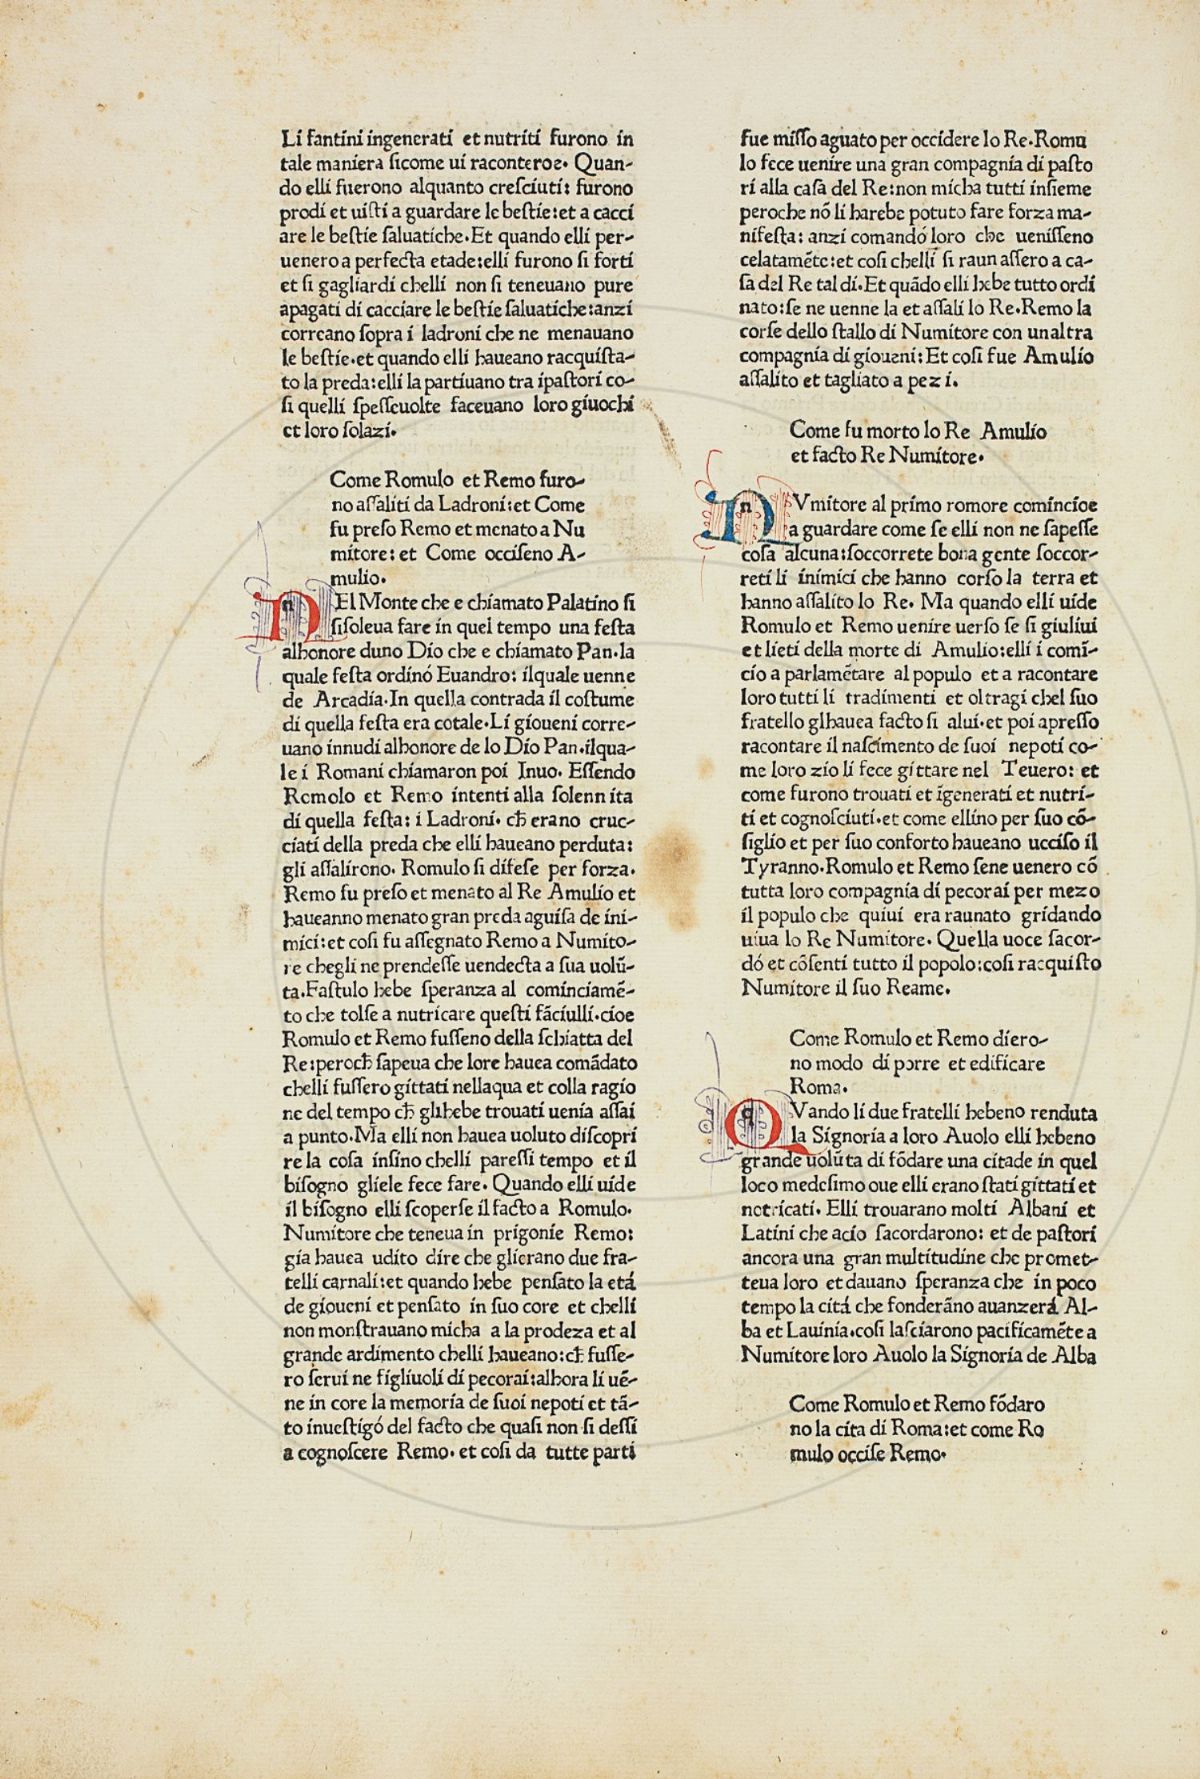 Li fantini ingenerati et nutriti furono in
tale maniera ſicome ui raconteroe. Quan-
do elli fuerono alquanto creſciuti: furono
prodi et uiſti a guardare le beſtie: et a cacci
are le beſtie ſaluatiche. Et quando elli per-
uenero a perfecta etade: elli furono ſi forti
et ſi gagliardi chelli non ſi teneuano pure
apagati di cacciare le beſtie ſaluatiche: anzi
correano ſopra i ladroni che ne menauano
le beſtie. et quando elli haueano racquiſta-
to la preda: elli la partiuano tra ipaſtori co-
ſi quelli ſpeſſeuolte faceuano loro giuochi
et loro ſolazi.
Come Romulo et Remo furo-
no aſſaliti da Ladroni: et Come
fu preſo Remo et menato a Nu
mitore: et Come occiſeno A-
mulio.
NEl Monte che e chiamato Palatino ſi
ſiſoleua fare in quel tempo una feſta
alhonore duno Dio che e chiamato Pan. la
quale feſta ordinó Euandro: ilquale uenne
de Arcadia. In quella contrada il coſtume
di quella feſta era cotale. Li gioueni corre-
uano innudi alhonore de lo Dio Pan. ilqua-
le i Romani chiamaron poi Inuo. Eſſendo
Romolo et Remo intenti alla ſolennita
di quella feſta: i Ladroni. cħ erano cruc-
ciati della preda che elli haueano perduta:
gli aſſalirono. Romulo ſi difeſe per forza.
Remo fu preſo et menato al Re Amulio et
haueanno menato gran preda aguiſa de ini-
mici: et coſi fu aſſegnato Remo a Numito-
re chegli ne prendeſſe uendecta a ſua uolū-
ta. Faſtulo hebe ſperanza al cominciamē-
to che tolſe a nutricare queſti fāciulli. cioe
Romulo et Remo fuſſeno della ſchiatta del
Re: perocħ ſapeua che lore hauea comādato
chelli fuſſero gittati nellaqua et colla ragio
ne del tempo cħ glihebe trouati uenia aſſai
a punto. Ma elli non hauea uoluto diſcopri
re la coſa inſino chelli pareſſi tempo et il
biſogno gliele fece fare. Quando elli uide
il biſogno elli ſcoperſe il facto a Romulo.
Numitore che teneua in prigonie Remo:
gia hauea udito dire che glierano due fra-
telli carnali: et quando hebe penſato la etá
de gioueni et penſato in ſuo core et chelli
non monſtrauano micha a la prodeza et al
grande ardimento chelli haueano: cħ fuſſe-
ro ſerui ne figliuoli di pecorai: alhora li uē-
ne in core la memoria de ſuoi nepoti et tā-
to inueſtigó del facto che quaſi non ſi deſſi
a cognoſcere Remo. et coſi da tutte parti
fue miſſo aguato per occidere lo Re. Romu
lo fece uenire una gran compagnia di paſto
ri alla caſa del Re: non micha tutti inſieme
peroche nō li harebe potuto fare forza ma-
nifeſta: anzi comandó loro che ueniſſeno
celatamēte: et coſi chelli ſi raunaſſero a ca-
ſa del Re tal di. Et quādo elli hebe tutto ordi
nato: ſe ne uenne la et aſſali lo Re. Remo la
corſe dello ſtallo di Numitore con unaltra
compagnia di gioueni: Et coſi fue Amulio
aſſalito et tagliato a pezi.
Come fu morto lo Re Amulio
et facto Re Numitore.
NVmitore al primo romore comincioe
a guardare come ſe elli non ne ſapeſſe
coſa alcuna: ſoccorrete bona gente ſoccor-
reti li inimici che hanno corſo la terra et
hanno aſſalito lo Re. Ma quando elli uide
Romulo et Remo uenire uerſo ſe ſi giuliui
et lieti della morte di Amulio: elli i comī-
cio a parlamētare al populo et a racontare
loro tutti li tradimenti et oltragi chel ſuo
fratello glhauea facto ſi alui. et poi apreſſo
racontare il naſcimento de ſuoi nepoti co-
me loro zio li fece gittare nel Teuero: et
come furono trouati et īgenerati et nutri-
ti et cognoſciuti. et come ellino per ſuo cō-
ſiglio et per ſuo conforto haueano ucciſo il
Tyranno. Romulo et Remo ſene uenero cō
tutta loro compagnia di pecorai per mezo
il populo che quiui era raunato gridando
uiua lo Re Numitore. Quella uoce ſacor-
dó et cōſenti tutto il popolo: coſi racquiſto
Numitore il ſuo Reame.
Come Romulo et Remo diero-
no modo di porre et edificare
Roma.
QVando li due fratelli hebeno renduta
la Signoria a loro Auolo elli hebeno
grande uolūta di fōdare una citade in quel
loco medeſimo oue elli erano ſtati gittati et
notricati. Elli trouarano molti Albani et
Latini che acio ſacordarono: et de paſtori
ancora una gran multitudine che promet-
teua loro et dauano ſperanza che in poco
tempo la citá che fonderāno auanzerá Al-
ba et Lauinia. coſi laſciarono pacificamēte a
Numitore loro Auolo la Signoria de Alba
Come Romulo et Remo fōdaro
no la cita di Roma: et come Ro
mulo occiſe Remo.